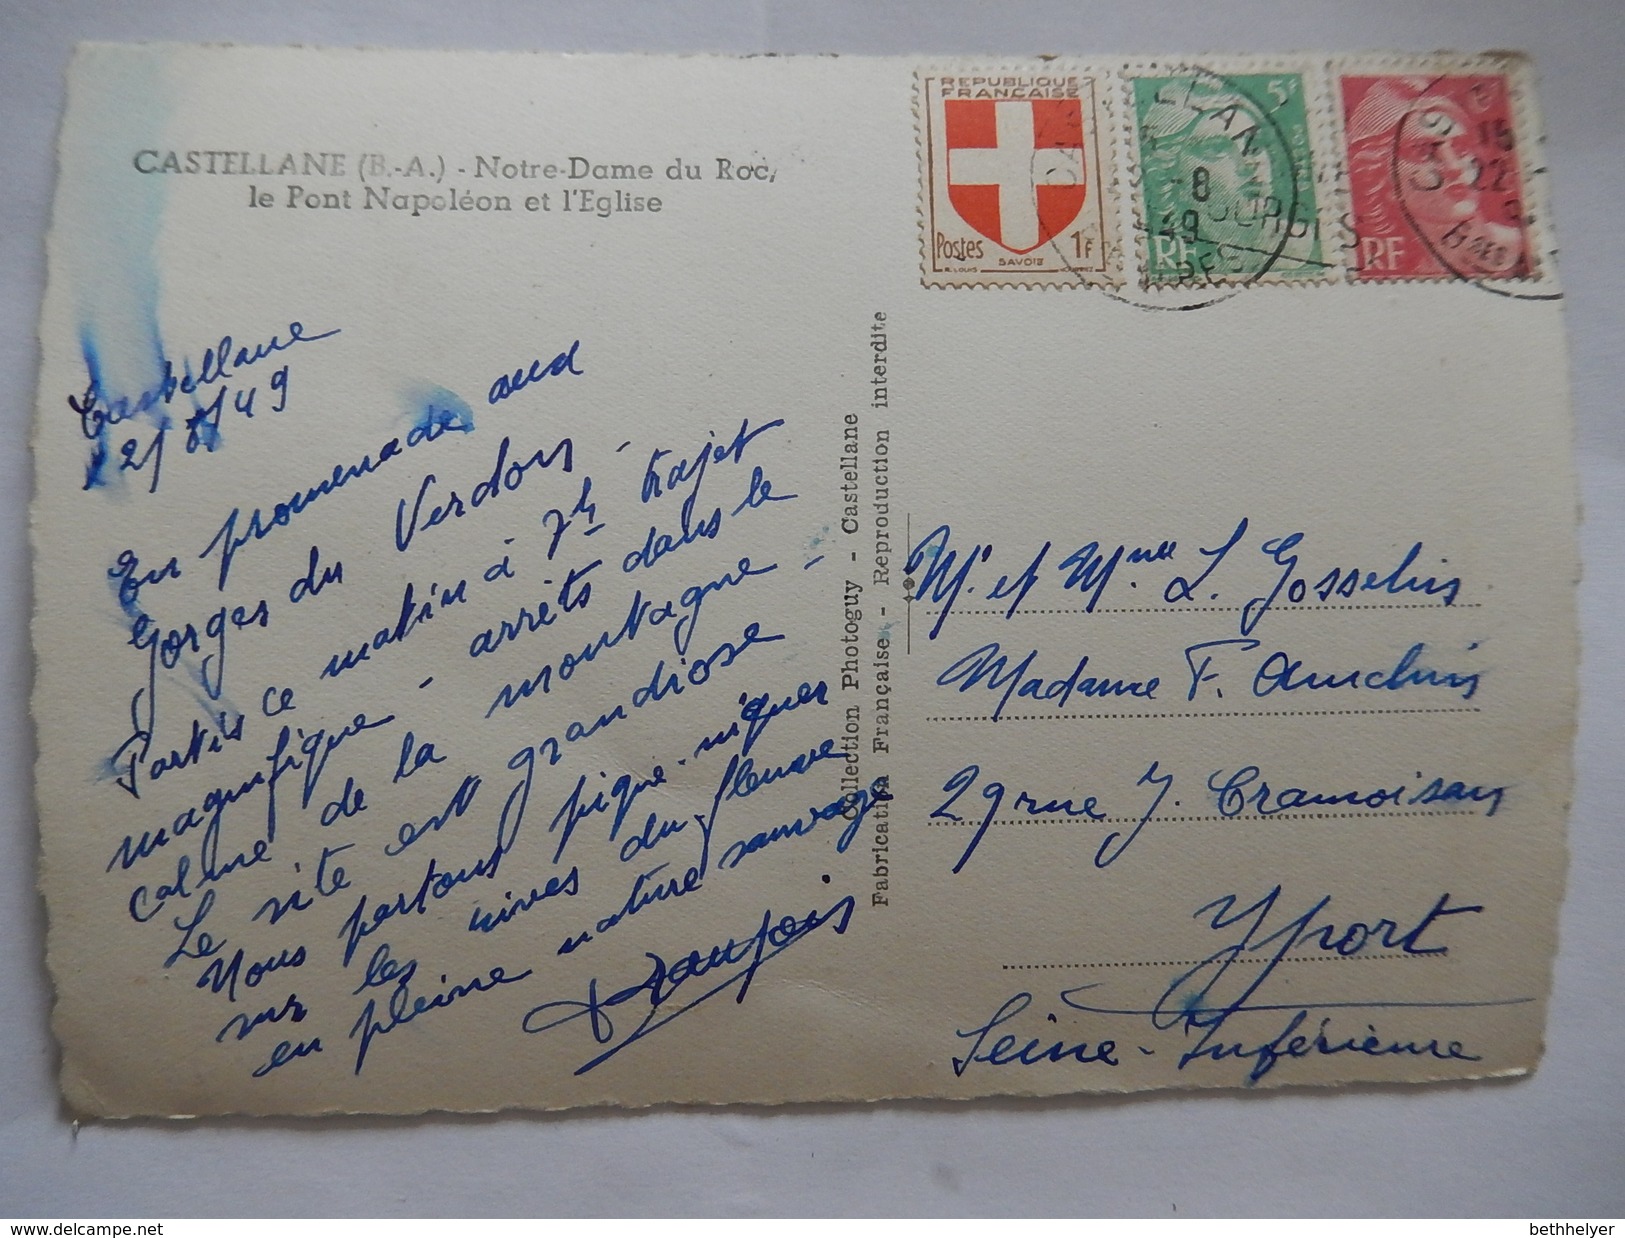 CASTELLANE (B.-A.) - Notre-Dame du Roc,
le Pont Napoléon et l'Eglise
REPUBLIQUE
FRANÇAISE
Postes 1F
SAVOIE
5F
RF
RF
8
49
15
22
Castellane
2/8/49
En promenade aux
Gorges du Verdon -
Partis ce matin à 7h trajet
magnifique - arrêts dans le
calme de la montagne -
Le site est grandiose
Nous partons pique-niquer
sur les rives du fleuve
en pleine nature sauvage
Collection Photoguy - Castellane
Fabrication Française - Reproduction interdite
Mr et Mme L. Gosselin
Madame F.
29 rue J. Cramoisan
Yport
Seine-Inférieure
bethhelyer